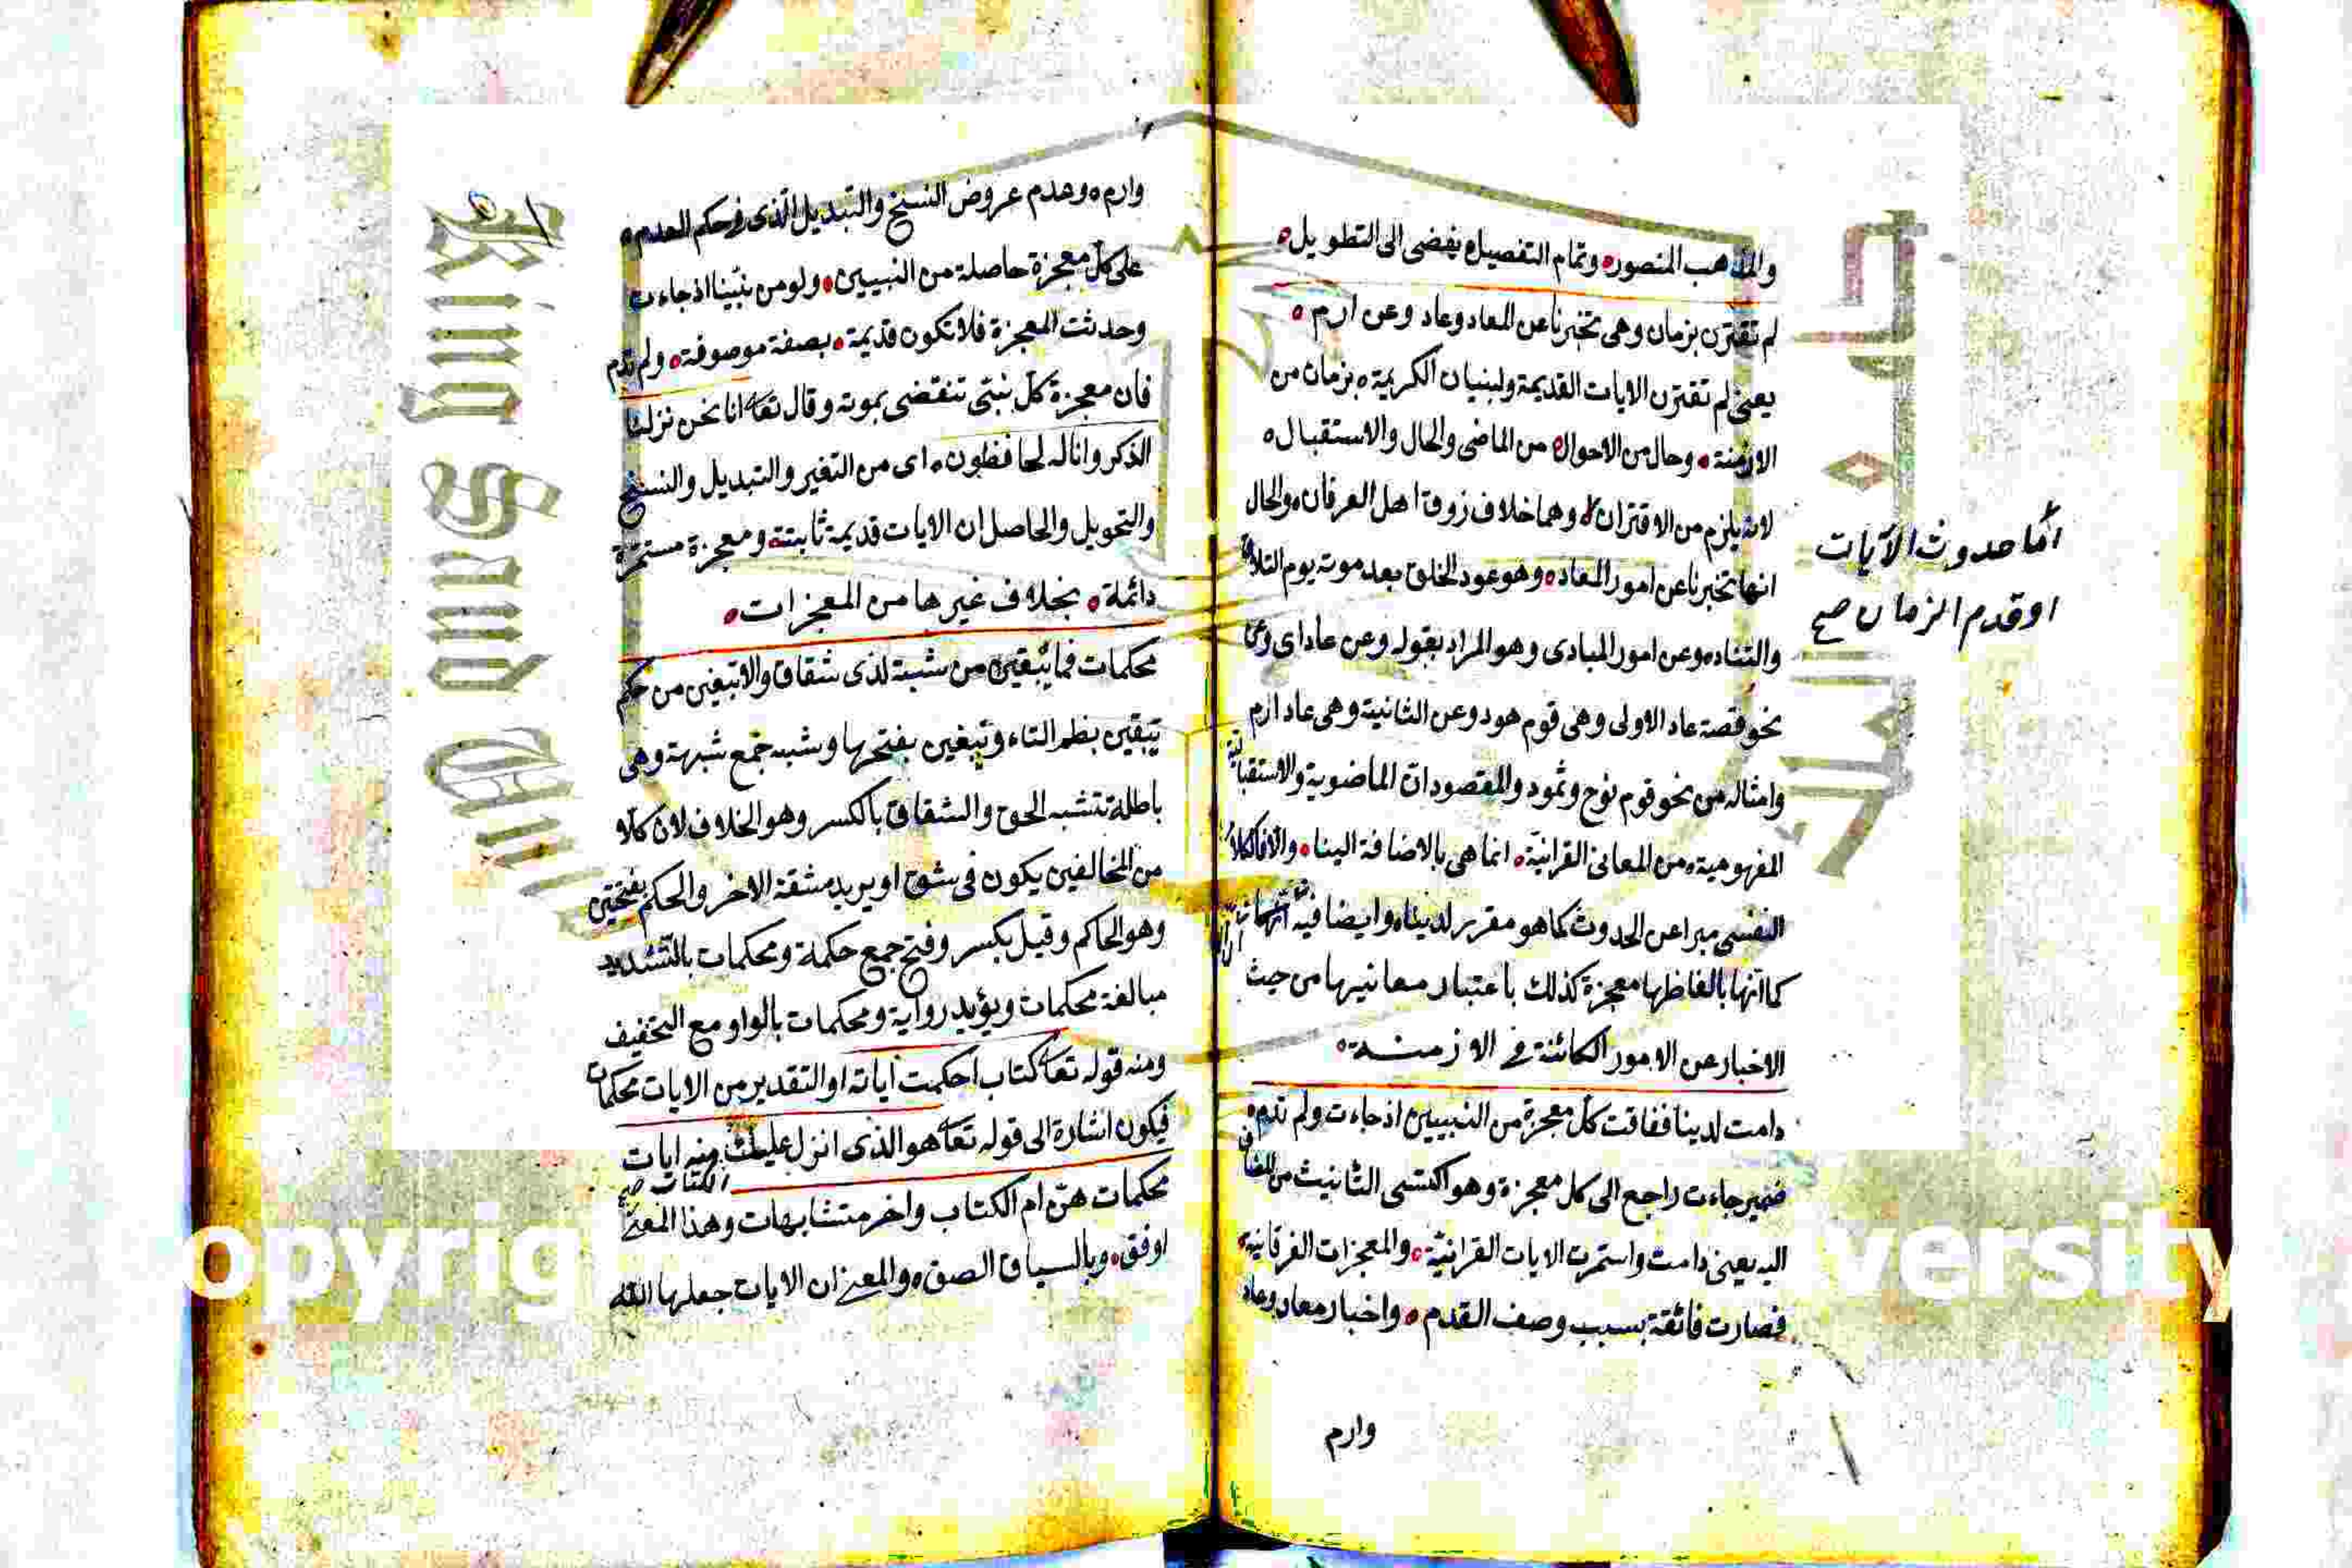 والمذهب المنصور وتمام التفصيل يفضى الى التطويل
لم تقترن بزمان وهى تخبرنا عن المعاد وعاد وعن ارم
يعنى لم تقترن الايات القديمة ولبنيان الكريمة بزمان من
الازمنة وحال من الاحوال من الماضى والحال والاستقبال
لانه يلزم من الاقتران وهما خلاف ذوق اهل العرفان والحال
اما حدوث الآيات
او قدم الزمان صح
انها تخبرنا عن امور المعاد وهو عود الخلق بعد موته يوم التلاق
والتناد وعن امور المبادى وهو المراد بقوله وعن عاد اى وعن
نحو قصة عاد الاولى وهى قوم هود وعن الثانية وهى عاد ارم
وامثاله من نحو قوم نوح وثمود والمقصود ان الماضوية والاستقبالية
المفهومية من المعانى القرانية انما هى بالاضافة الينا والا فالكلام
النفسى مبرا عن الحدوث كما هو مقرر لدينا وايضا فيه
كما انها بالفاظها معجزة كذلك باعتبار معانيها من حيث
الاخبار عن الامور الكائنة فى الازمنة
دامت لدينا ففاقت كل معجزة من النبيين اذ جاءت ولم تدم
ضمير جاءت راجع الى كل معجزة وهو اكتسى التانيث من المضاف
اليه يعنى دامت واستمرت الايات القرانية والمعجزات الفرقانية
فصارت فائقة بسبب وصف القدم واخبار معاد وعاد
وارم
وارم وعدم عروض النسخ والتبديل الذى فى حكم العدم
على كل معجزة حاصلة من النبيين ولو من نبينا اذ جاءت
وحدثت المعجزة فلا تكون قديمة بصفة موصوفة ولم تدم
فان معجزة كل نبى تنقضى بموته وقال تعا انا نحن نزلنا
الذكر وانا له لحافظون اى من التغير والتبديل والنسخ
والتحويل والحاصل ان الايات قديمة ثابتة ومعجزة مستمرة
دائمة بخلاف غيرها من المعجزات
محكمات فما يبقين من شبه لذى شقاق ولا تبغين من حكم
تبقين بضم التاء وتبغين بفتحها وشبه جمع شبهة وهى
باطلة تتشبه الحق والشقاق بالكسر وهو الخلاف لان كلا
من المخالفين يكون فى شق او يريد مشقة الاخر والحكم بفتحتين
وهو الحاكم وقيل بكسر وفتح جمع حكمة ومحكمات بالتشديد
مبالغة محكمات ويؤيد رواية ومحكمات بالواو مع التخفيف
ومنه قوله تعا كتاب احكمت اياته او التقدير من الايات محكمات
فيكون اشارة الى قوله تعا هو الذى انزل عليك منه ايات
الكتاب صح
محكمات هن ام الكتاب واخر متشابهات وهذا المعنى
اوفق وبالسياق الصق والمعنى ان الايات جعلها الله